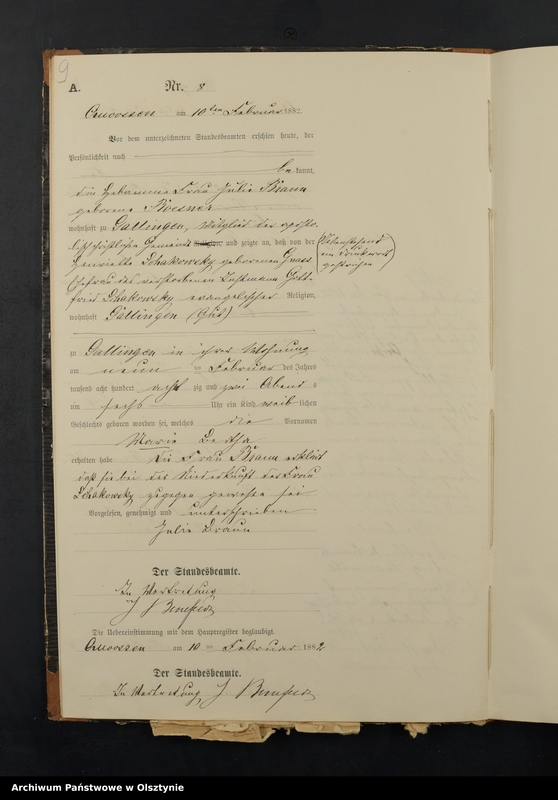 9
A.
Nr. 8
am 10ten Februar 1882
Vor dem unterzeichneten Standesbeamten erschien heute, der
Persönlichkeit nach
be kannt,
die Hebamme Frau Julie Braun
geborene Roesner
wohnhaft zu Gallingen, Mitglied der aposto-
lisch Gemeinde Religion, und zeigte an, daß von der
Nebenstehend
ein Druckwort
gestrichen
Henriette Schakowsky geborenen Gnass
Ehefrau des verstorbenen Instmann Gott-
fried Schakowsky evangelischer Religion,
wohnhaft Gallingen (Gut)
zu Gallingen in ihrer Wohnung
am neun ten Februar des Jahres
tausend acht hundert acht zig und zwei Abend s
um sechs Uhr ein Kind weib lichen
Geschlechts geboren worden sei, welches die Vornamen
Marie Bertha
erhalten habe Die Frau Braun erklärt
daß sie bei der Niederkunft der Frau
Schakowsky zugegen gewesen sei
Vorgelesen, genehmigt und unterschrieben
Julie Braun
Der Standesbeamte.
In Vertretung
Die Uebereinstimmung mit dem Hauptregister beglaubigt
am 10 ten Februar 1882
Der Standesbeamte.
In Vertretung
Archiwum Państwowe w Olsztynie